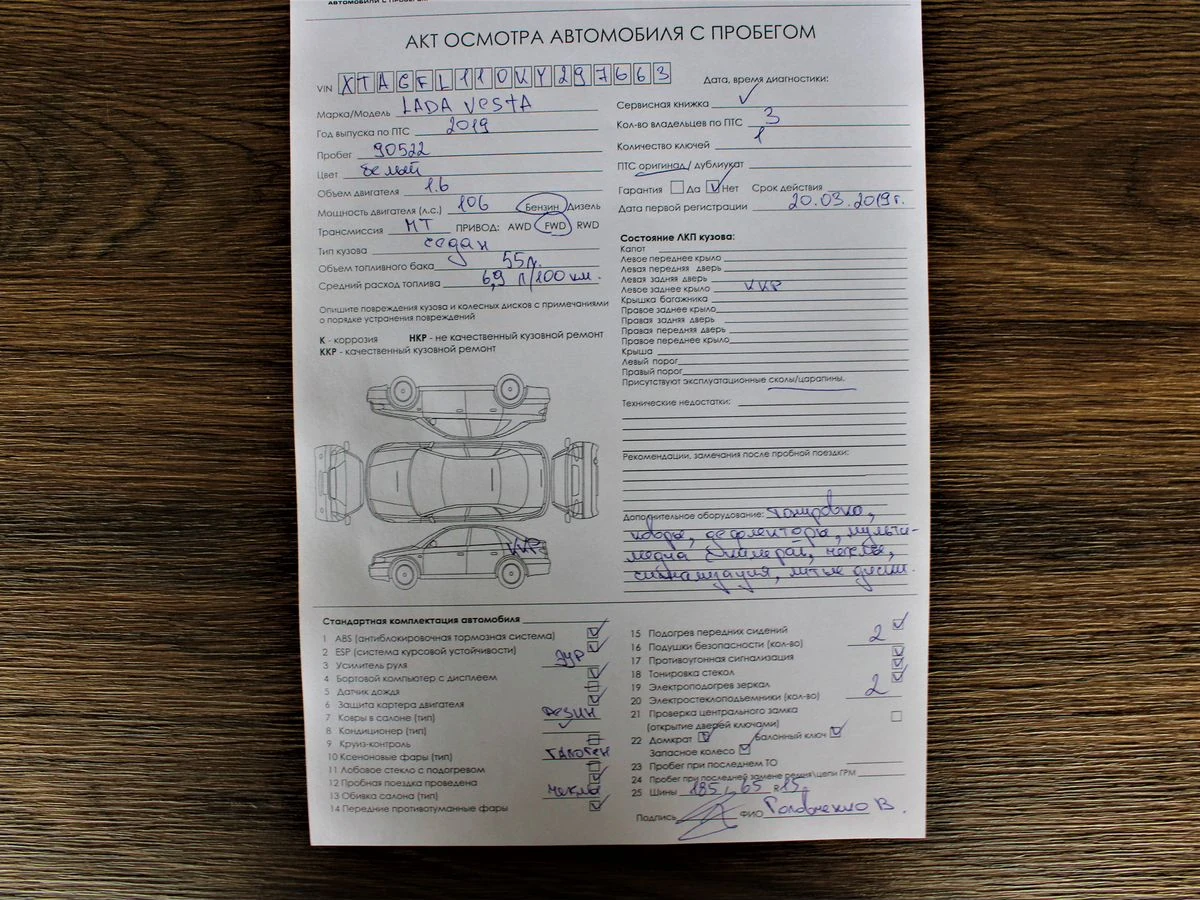 АВТОМОБИЛИ С ПРОБЕГОМ
АКТ ОСМОТРА АВТОМОБИЛЯ С ПРОБЕГОМ
VIN XTAGFL110KY297663
Марка/Модель LADA VESTA
Год выпуска по ПТС 2019
Пробег 90522
Цвет белый
Объем двигателя 1.6
Мощность двигателя (л.с.) 106 Бензин Дизель
Трансмиссия МТ ПРИВОД: AWD FWD RWD
Тип кузова седан
Объем топливного бака 55л.
Средний расход топлива 6,9 л/100 км.
Опишите повреждения кузова и колесных дисков с примечаниями
о порядке устранения повреждений
К - коррозия НКР - не качественный кузовной ремонт
ККР - качественный кузовной ремонт
ККР
Дата, время диагностики:
Сервисная книжка
Кол-во владельцев по ПТС 3
Количество ключей 1
ПТС оригинал/ дубликат
Гарантия Да Нет Срок действия
Дата первой регистрации 20.03.2019г.
Состояние ЛКП кузова:
Капот
Левое переднее крыло
Левая передняя дверь
Левая задняя дверь
Левое заднее крыло ККР
Крышка багажника
Правое заднее крыло
Правая задняя дверь
Правая передняя дверь
Правое переднее крыло
Крыша
Левый порог
Правый порог
Присутствуют эксплуатационные сколы/царапины.
Технические недостатки:
Рекомендации, замечания после пробной поездки:
Дополнительное оборудование: тонировка,
ковры, дефлекторы, мульти-
медиа с камерой, чехлы,
сигнализация, литые диски.
Стандартная комплектация автомобиля
1 ABS (антиблокировочная тормозная система)
2 ESP (система курсовой устойчивости)
3 Усилитель руля ЭУР
4 Бортовой компьютер с дисплеем
5 Датчик дождя
6 Защита картера двигателя
7 Ковры в салоне (тип) резин
8 Кондиционер (тип)
9 Круиз-контроль
10 Ксеноновые фары (тип) галоген
11 Лобовое стекло с подогревом
12 Пробная поездка проведена
13 Обивка салона (тип) чехлы
14 Передние противотуманные фары
15 Подогрев передних сидений
16 Подушки безопасности (кол-во) 2
17 Противоугонная сигнализация
18 Тонировка стекол
19 Электроподогрев зеркал
20 Электростеклоподъемники (кол-во) 2
21 Проверка центрального замка
(открытие дверей ключами)
22 Домкрат Балонный ключ
Запасное колесо
23 Пробег при последнем ТО
24 Пробег при последней замене ремня\цепи ГРМ
25 Шины 185 / 65 R15
Подпись ФИО Головченко В.